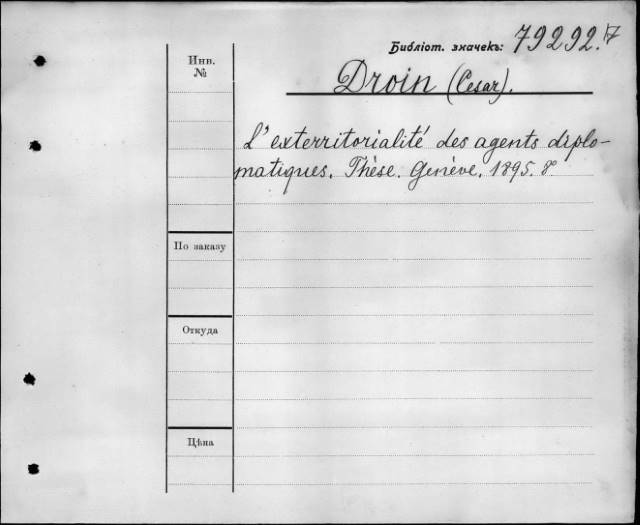 Библіот. значекъ: 79292.
Инв. №
Droin (Cesar).
L'exterritorialité des agents diplo-
matiques. Thèse. Genève. 1895. 8°
По заказу
Откуда
Цѣна